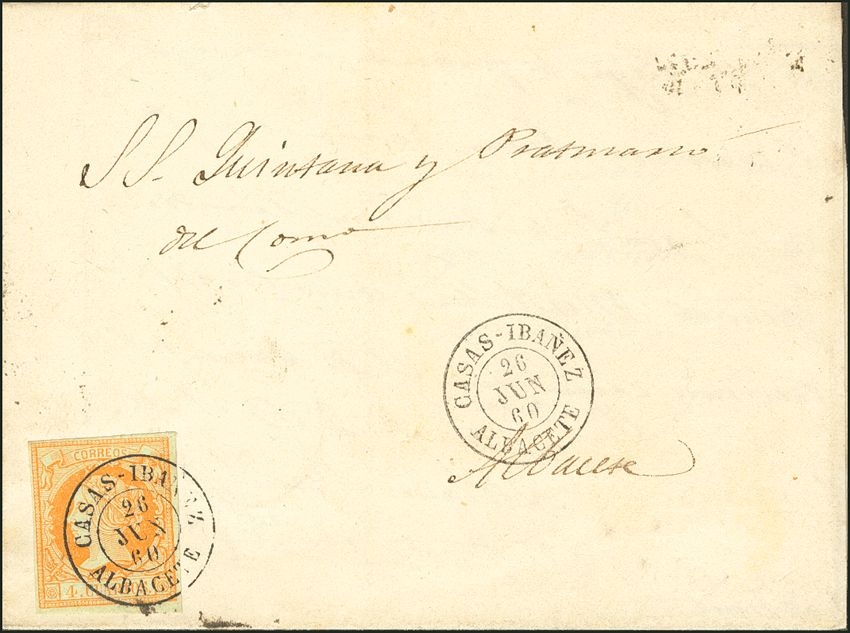 SS. Quintana y
del Come
CASAS-IBAÑEZ
26
JUN
60
ALBACETE
Albacete
CORREOS
CASAS-IBAÑEZ
26
JUN
60
ALBACETE
4.